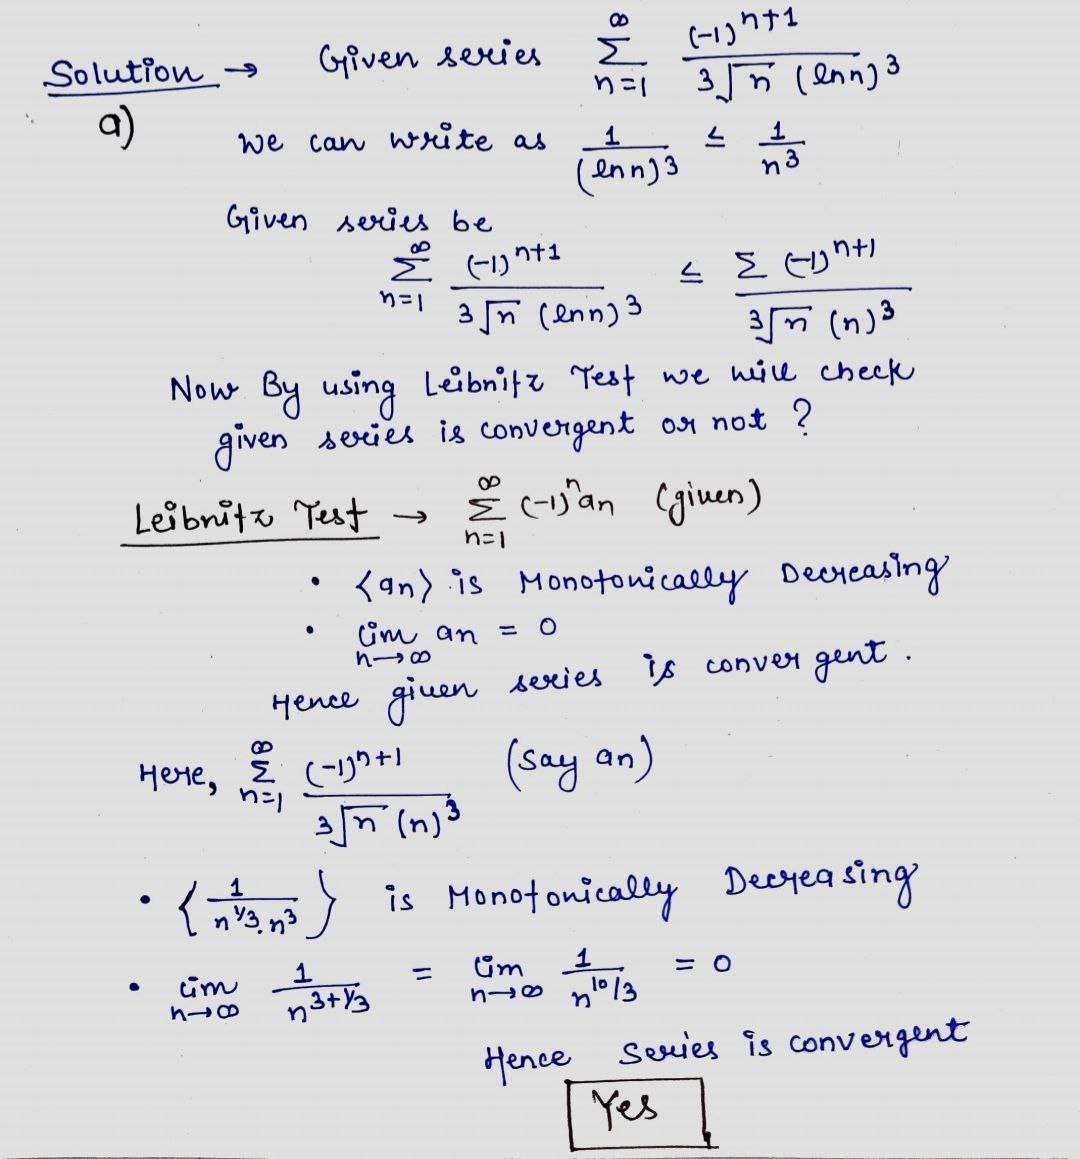 Solution → Given series ∞ Σ n=1 (-1)^{n+1} / ∛n (ln n)^3
a)
We can write as 1/(ln n)^3 ≤ 1/n^3
Given series be
∞ Σ n=1 (-1)^{n+1} / ∛n (ln n)^3 ≤ Σ (-1)^{n+1} / ∛n (n)^3
Now By using Leibnitz Test we will check
given series is convergent or not ?
Leibnitz Test → ∞ Σ n=1 (-1)^n an (given)
• ⟨an⟩ is Monotonically Decreasing
• lim n→∞ an = 0
Hence given series is convergent.
Here, ∞ Σ n=1 (-1)^{n+1} / ∛n (n)^3 (say an)
• {1 / n^{1/3}. n^3} is Monotonically Decreasing
• lim n→∞ 1 / n^{3+1/3} = lim n→∞ 1 / n^{10/3} = 0
Hence Series is convergent
Yes